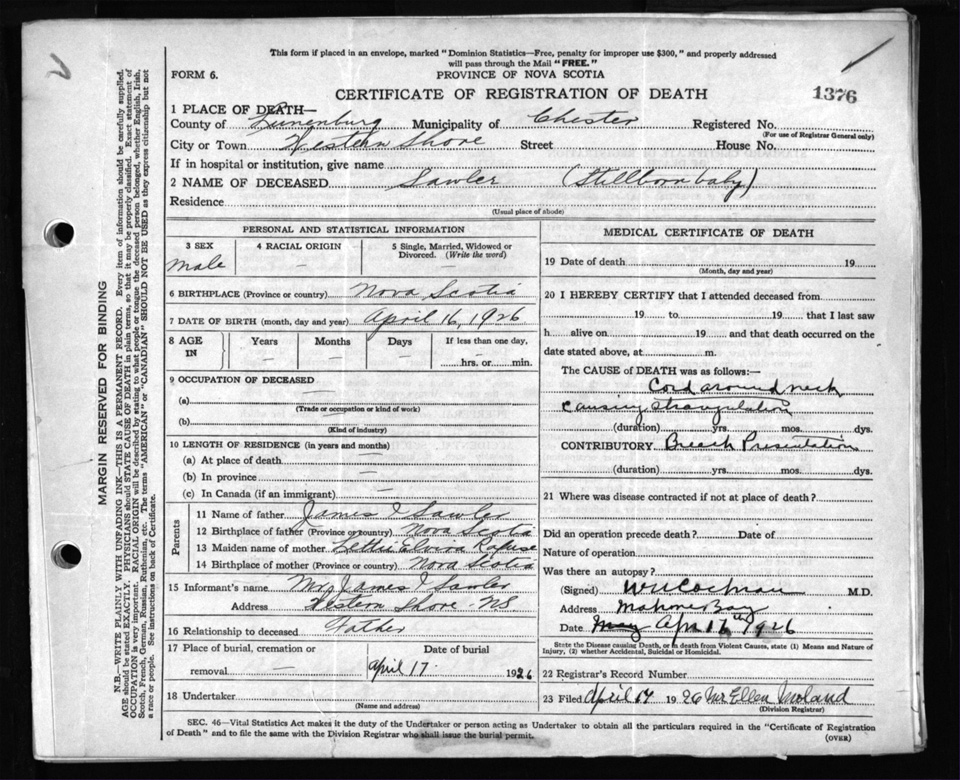 This form if placed in an envelope, marked "Dominion Statistics—Free, penalty for improper use $300," and properly addressed
will pass through the Mail "FREE."
FORM 6.
PROVINCE OF NOVA SCOTIA
CERTIFICATE OF REGISTRATION OF DEATH
1376
1 PLACE OF DEATH—
County of Lunenburg Municipality of Chester Registered No.
(For use of Registrar General only)
City or Town Western Shore Street House No.
If in hospital or institution, give name
2 NAME OF DECEASED Sawler (Stillborn baby)
Residence
(Usual place of abode)
PERSONAL AND STATISTICAL INFORMATION
3 SEX 4 RACIAL ORIGIN 5 Single, Married, Widowed or
Divorced. (Write the word)
Male — —
6 BIRTHPLACE (Province or country) Nova Scotia
7 DATE OF BIRTH (month, day and year) April 16, 1926
8 AGE IN Years Months Days If less than one day,
— — — hrs. or min.
9 OCCUPATION OF DECEASED
(a) —
(Trade or occupation or kind of work)
(b) —
(Kind of industry)
10 LENGTH OF RESIDENCE (in years and months)
(a) At place of death —
(b) In province —
(c) In Canada (if an immigrant) —
Parents
11 Name of father James I Sawler
12 Birthplace of father (Province or country) Nova Scotia
13 Maiden name of mother Elvira
14 Birthplace of mother (Province or country) Nova Scotia
15 Informant's name James I Sawler
Address Western Shore - NS
16 Relationship to deceased Father
17 Place of burial, cremation or Date of burial
removal — April 17 1926
18 Undertaker
(Name and address)
MEDICAL CERTIFICATE OF DEATH
19 Date of death 19
(Month, day and year)
20 I HEREBY CERTIFY that I attended deceased from
19 to 19 that I last saw
h alive on 19 and that death occurred on the
date stated above, at m.
The CAUSE of DEATH was as follows:—
Cord around neck
causing strangulation
(duration) yrs. mos. dys.
CONTRIBUTORY Breech Presentation
(duration) yrs. mos. dys.
21 Where was disease contracted if not at place of death?
Did an operation precede death? Date of
Nature of operation
Was there an autopsy?
(Signed) Cochran M.D.
Address Mahone Bay
Date May Apr 17th 1926
State the Disease causing Death, or in death from Violent Causes, state (1) Means and Nature of
Injury, (2) whether Accidental, Suicidal or Homicidal.
22 Registrar's Record Number
23 Filed April 1926 Ellen
(Division Registrar)
SEC. 46—Vital Statistics Act makes it the duty of the Undertaker or person acting as Undertaker to obtain all the particulars required in the "Certificate of Registration
of Death" and to file the same with the Division Registrar who shall issue the burial permit.
(OVER)
MARGIN RESERVED FOR BINDING
N.B.—WRITE PLAINLY WITH UNFADING INK—THIS IS A PERMANENT RECORD. Every item of information should be carefully supplied.
AGE should be stated EXACTLY. PHYSICIANS should STATE CAUSE OF DEATH in plain terms, so that it may be properly classified. Exact statement of
OCCUPATION is very important. RACIAL ORIGIN will be described by stating to what people or tongue the deceased person belonged, whether English, Irish,
Scotch, French, German, Russian, Ruthenian, etc. The terms "AMERICAN" or "CANADIAN" SHOULD NOT BE USED as they express citizenship but not
a race or people. See instructions on back of Certificate.